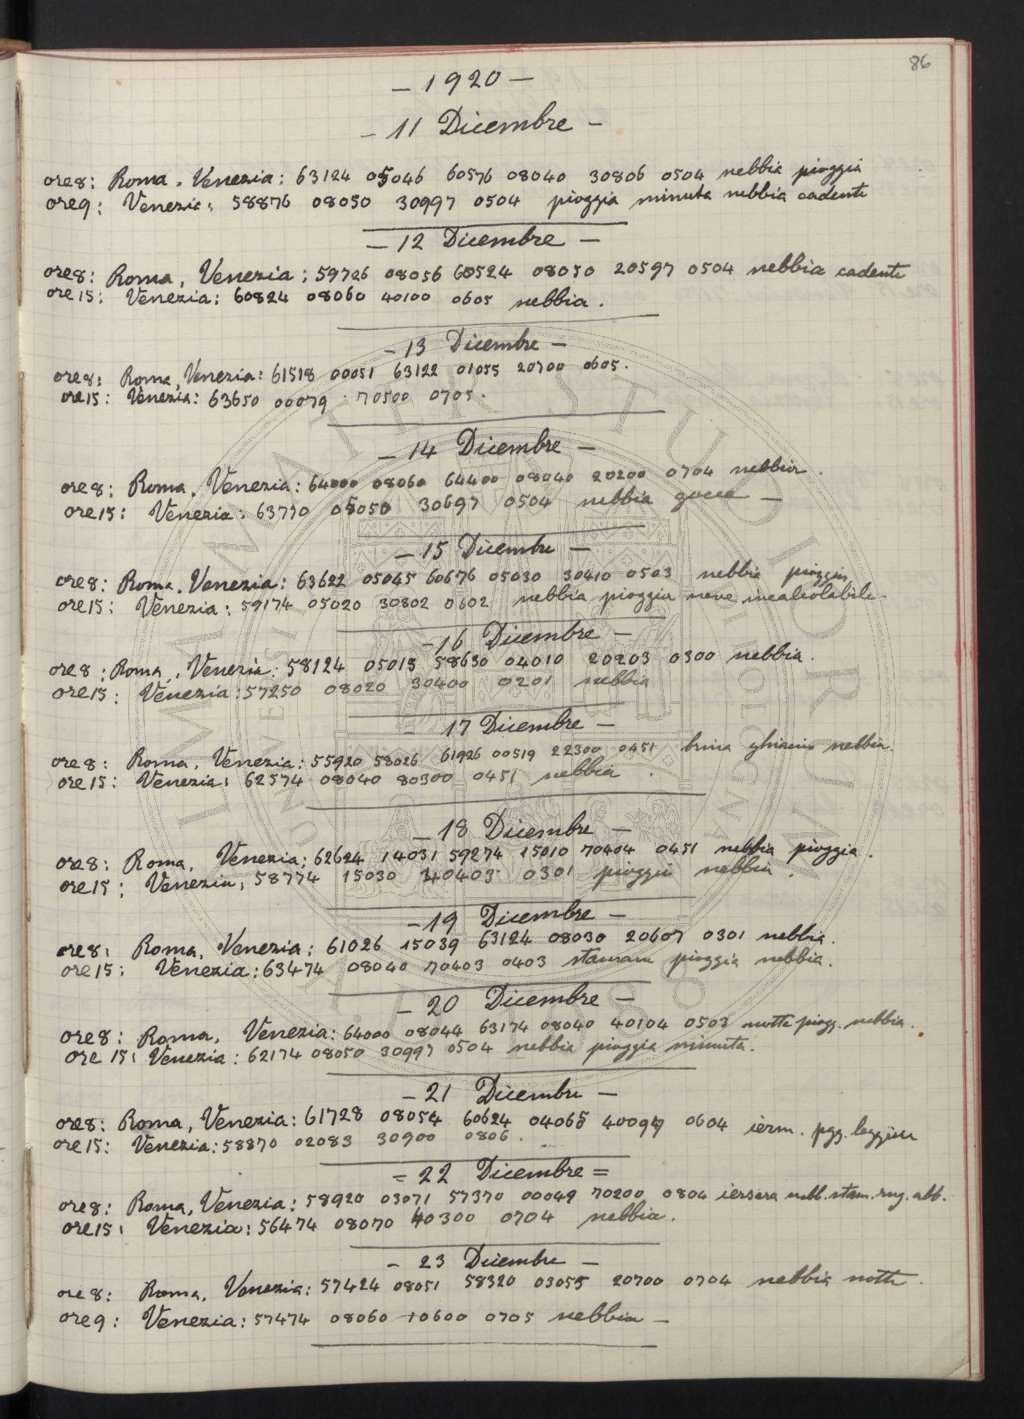 86
— 1920 —
— 11 Dicembre —
ore8: Roma, Venezia: 63124 05046 60576 08040 30806 0504 nebbia pioggia
ore9: Venezia: 58876 08050 30997 0504 pioggia minuta nebbia cadente
— 12 Dicembre —
ore8: Roma, Venezia: 59726 08056 60524 08050 20597 0504 nebbia cadente
ore15: Venezia: 60824 08060 40100 0605 nebbia.
— 13 Dicembre —
ore8: Roma, Venezia: 61518 00051 63122 01055 20700 0605.
ore15: Venezia: 63650 00079 70500 0705.
— 14 Dicembre —
ore8: Roma, Venezia: 64000 08060 64400 08040 20200 0704 nebbia.
ore15: Venezia: 63770 05050 30697 0504 nebbia gocce —
— 15 Dicembre —
ore8: Roma, Venezia: 63622 05045 60676 05030 30410 0503 nebbia pioggia,
ore15: Venezia: 59174 05020 30802 0602 nebbia pioggia neve incalcolabile.
— 16 Dicembre —
ore8: Roma, Venezia: 58124 05015 58630 04010 20203 0300 nebbia.
ore15: Venezia: 57250 08020 30400 0201 nebbia
— 17 Dicembre —
ore8: Roma, Venezia: 55920 58026 61926 00519 22300 0451 brina ghiaccio nebbia.
ore15: Venezia: 62574 08040 80300 0451 nebbia.
— 18 Dicembre —
ore8: Roma, Venezia: 62624 14031 59274 15010 70404 0451 nebbia pioggia.
ore15: Venezia, 58774 15030 40403 0301 pioggia nebbia.
— 19 Dicembre —
ore8: Roma, Venezia: 61026 15039 63124 08030 20607 0301 nebbia.
ore15: Venezia: 63474 08040 70403 0403 stamani pioggia nebbia.
— 20 Dicembre —
ore8: Roma, Venezia: 64000 08044 63174 08040 40104 0503 notte piogg. nebbia.
ore 15: Venezia: 62174 08050 30997 0504 nebbia pioggia minuta.
— 21 Dicembre —
ore8: Roma, Venezia: 61728 08054 60624 04065 40097 0604 iersera. pgg. leggiera
ore15: Venezia: 58870 02083 30900 0806.
= 22 Dicembre =
ore8: Roma, Venezia: 58920 03071 57370 00049 70200 0804 iersera nebb. stam. rug. abb.
ore15: Venezia: 56474 08070 40300 0704 nebbia.
— 23 Dicembre —
ore8: Roma, Venezia: 57424 08051 58320 03055 20700 0704 nebbia notte.
ore9: Venezia: 57474 08060 10600 0705 nebbia —